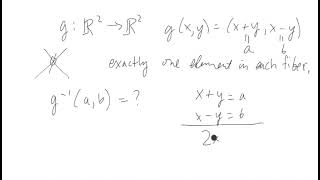 g: ℝ² → ℝ² g(x,y) = (x+y, x-y)
a b
exactly one element in each fiber.
g⁻¹(a,b) = ?
x+y = a
x-y = b
2x